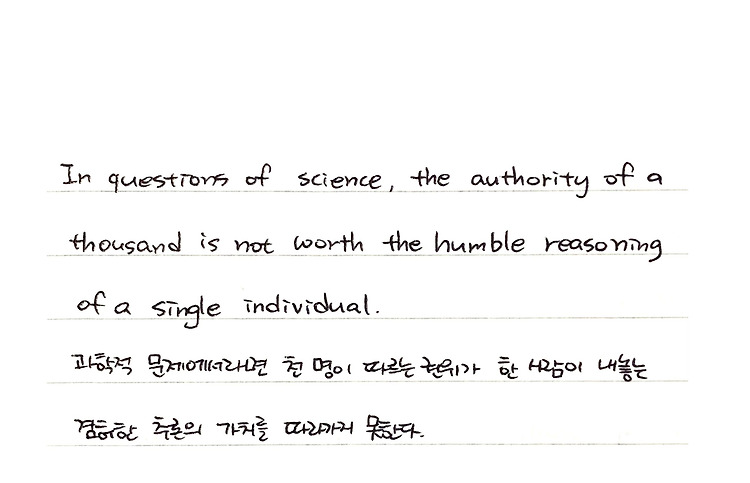 In questions of science, the authority of a
thousand is not worth the humble reasoning
of a single individual.
과학적 문제에서라면 천 명이 따르는 권위가 한 사람이 내놓는
겸허한 추론의 가치를 따라가지 못한다.